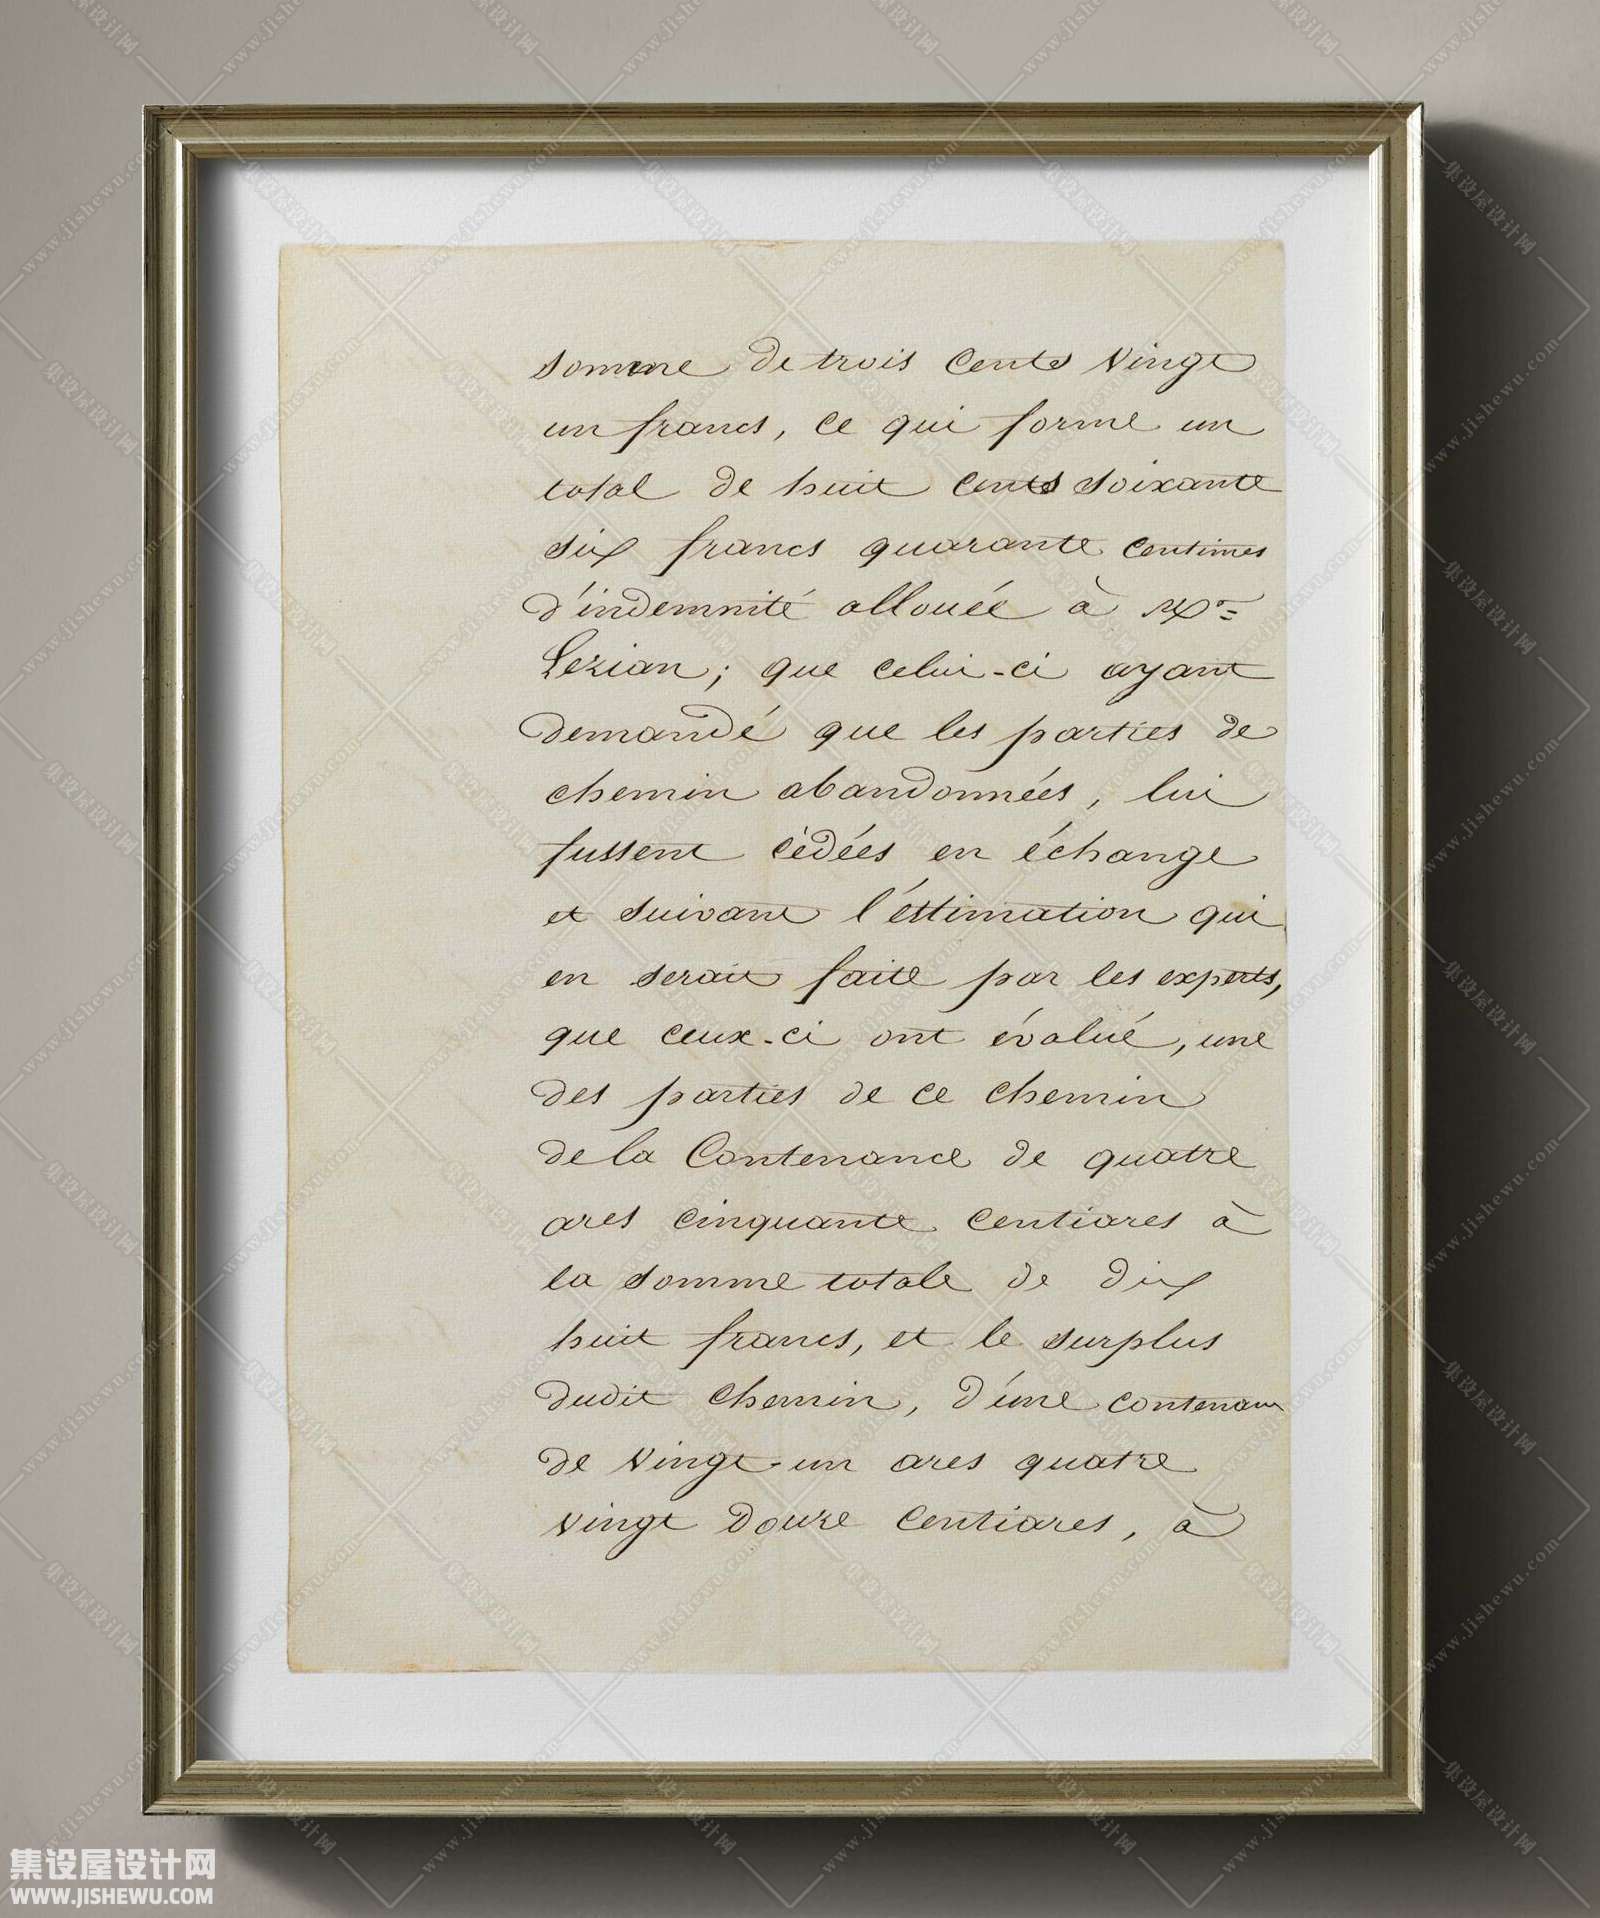 somme de trois cents vingt
un francs, ce qui forme un
total de huit cents soixante
six francs quarante centimes
d'indemnité allouée à Mr
Lezian; que celui-ci ayant
demandé que les parties de
chemin abandonnées, lui
fussent cèdées en échange
et suivant l'éstimation qui
en serait faite par les experts,
que ceux-ci ont évalué, une
des parties de ce chemin
de la Contenance de quatre
ares cinquante centiares à
la somme totale de dix
huit francs, et le surplus
dudit chemin, d'une
de vingt-un ares quatre
vingt douze centiares, à
集设屋设计网
WWW.JISHEWU.COM